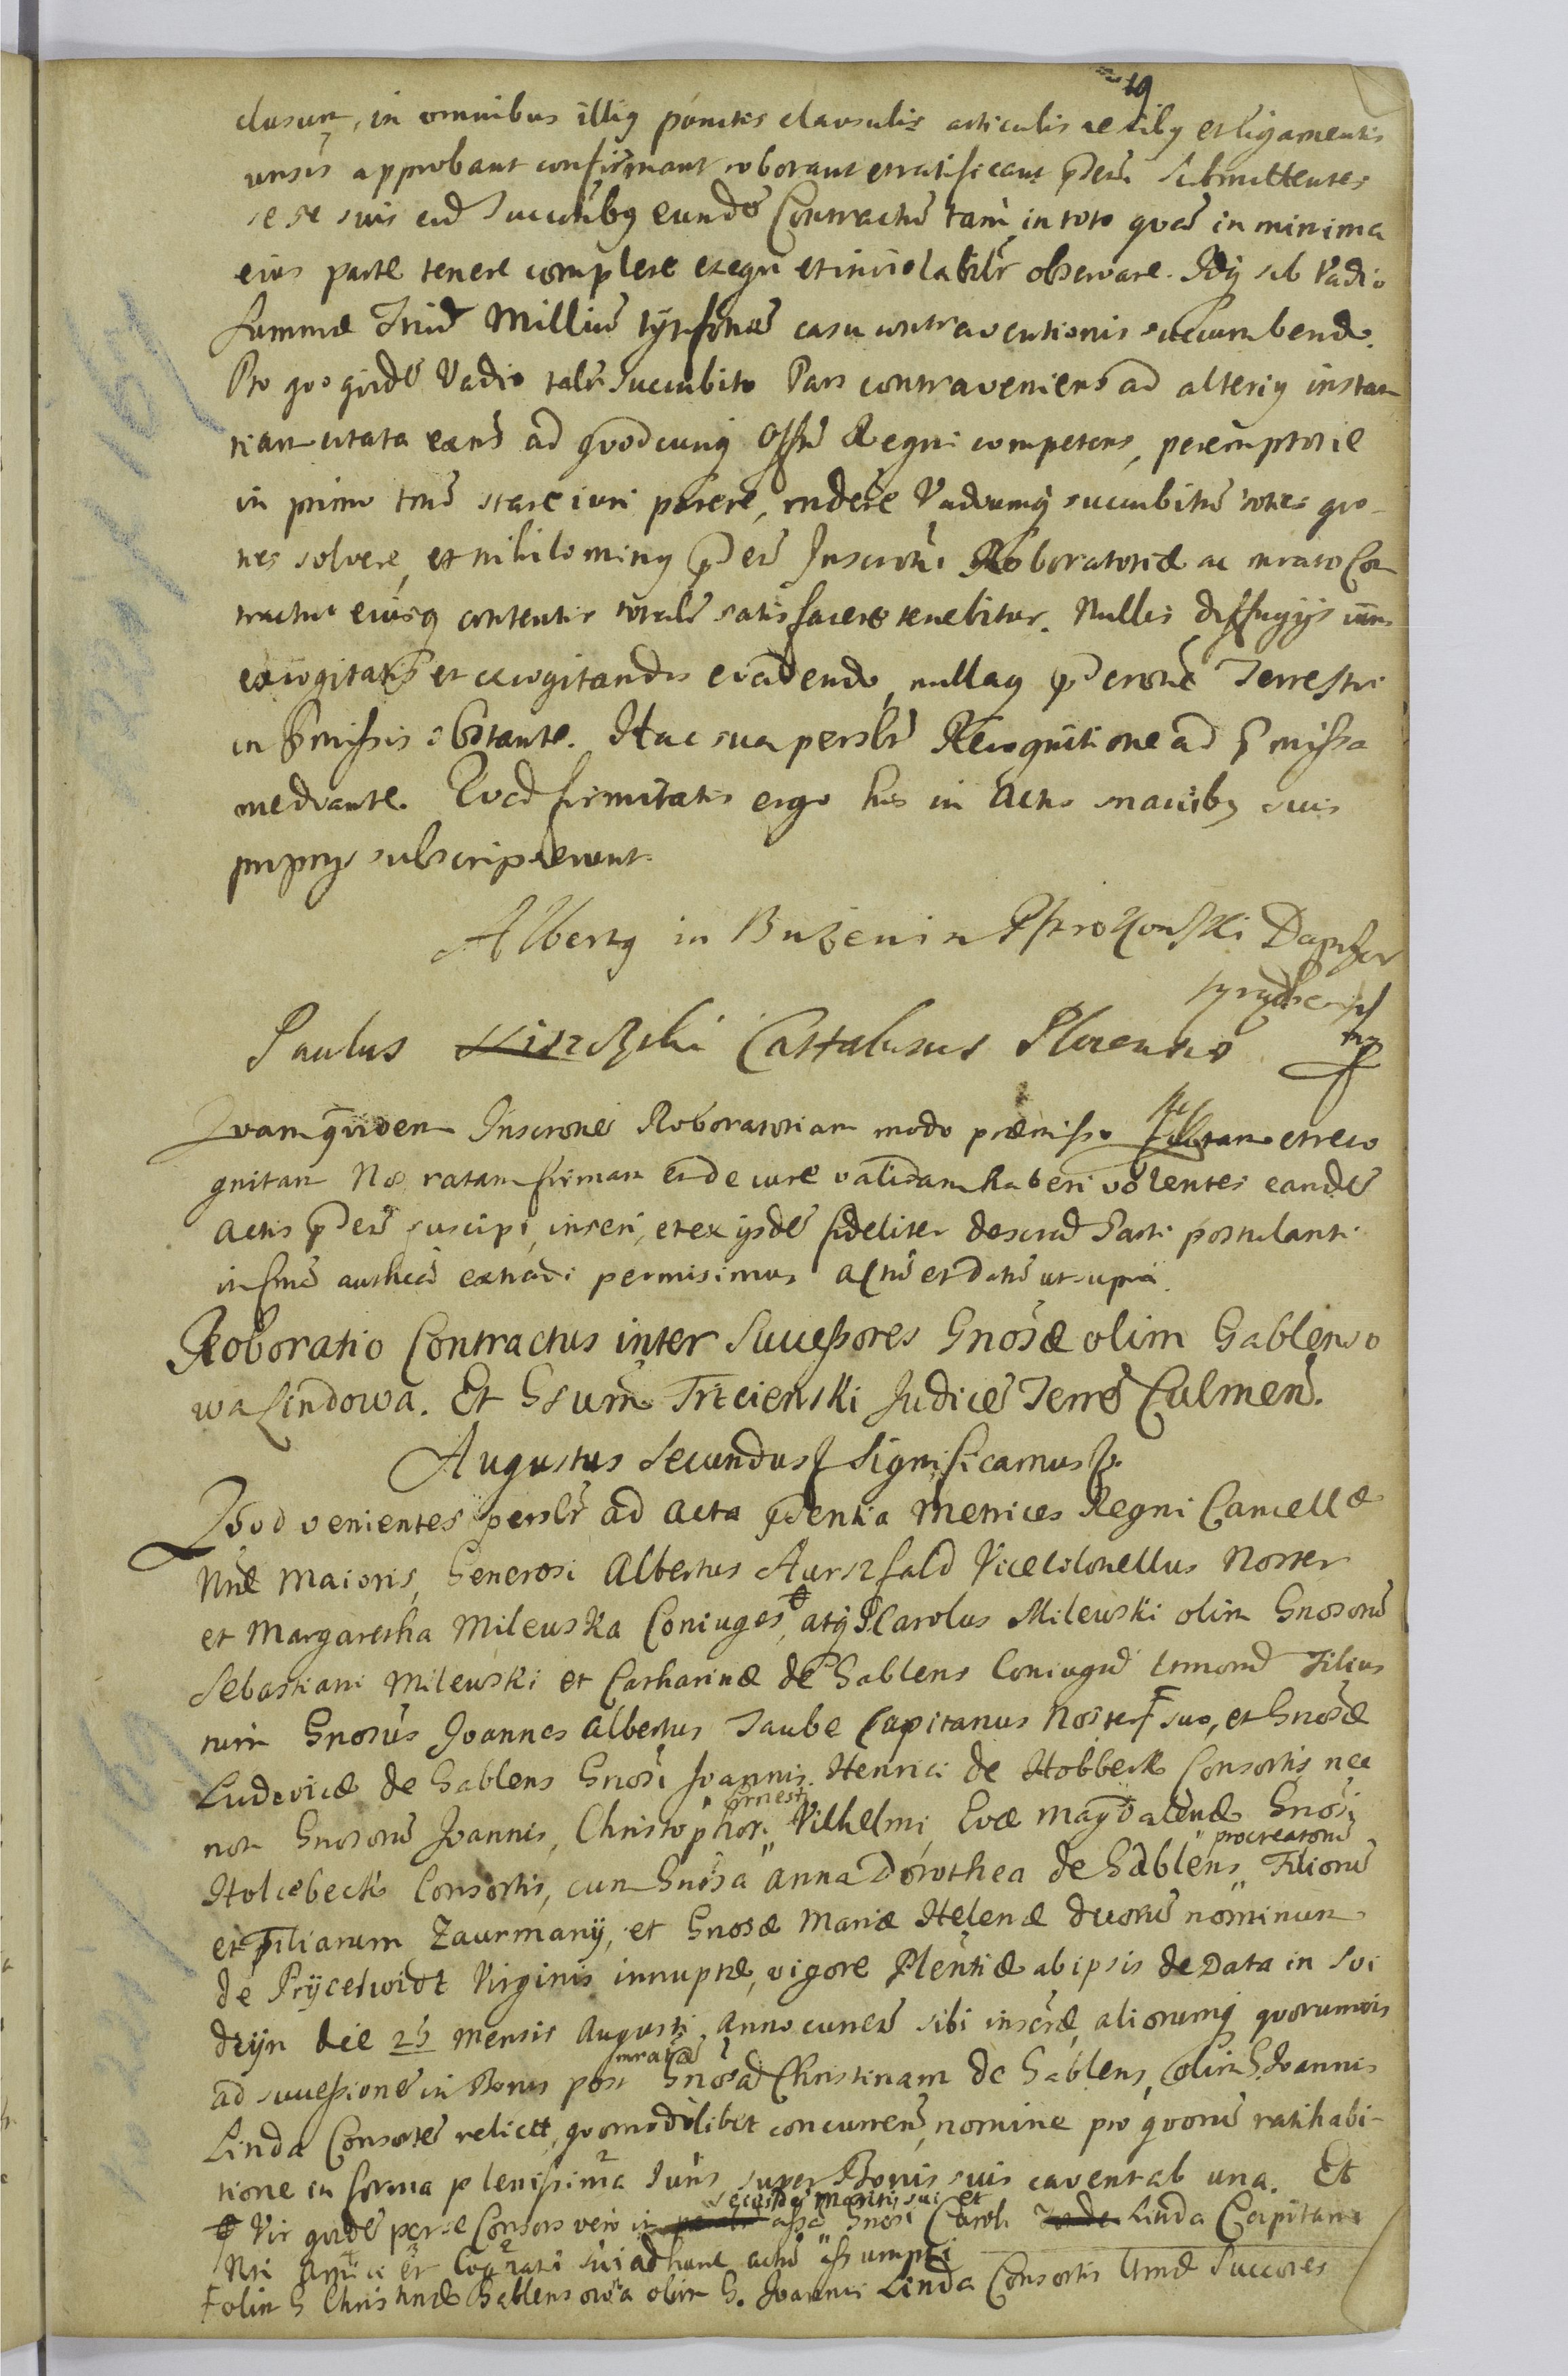 19
clusum, in omnibus illiq punctis clausulis articulis nexibq et ligamentis
unsis approbant confirmant roborant et ratificant pntem Submittentes
se se suis cũ Succribq eundẽ Contractũ tam in toto quã in minima
eius parte tenere complere exequi et inviolabilr observare. Idq sub Vadio
Summæ Triũ Milliũ tÿmfonũ casu contraventionis succumbendo.
Pro quo quidẽ Vadio talr Succubito Pars contraveniens ad alteriq instan
tiam citata extũs ad quodcunq Offũ Regni competens, peremptorie
in primo tnõ stare iuri parere, rndere Vadiumq succubitũ toties quo-
ties solvere, et nihilominq pntem Inscroni Roboratoriæ ac mrato Con
tractui eiusq contentis totalr satisfacere tenebitur. Nullis diffugijs iuris
excogitatis et excogitandis evadendo, nullaq pscrone Terrestri
in pmissis obstante. Hac sua persolr Recognitione ad pmissa
mediante. Quod firmitatis ergo hic in Actis manibq suis
proprijs subscripserunt.
Albertq in Buzenin Pstrokonski Dapifer
Syradien
mp
Paulus Castellanus
Quamquidem Inscronẽ Roboratoriam modo præmisso factam et reco
gnitam Nos ratam firmam et de iure validam haberi volentes eandẽ
Actis pntem suscipi, inseri, et ex ijsdẽ fideliter describi Parti postulanti
in fmã authcã extradi permisimus Actũ et datũ ut supra.
Roboratio Contractus inter Successores Gnosæ olim Gablenso
wa Lindowa. Et Gsum Trzcienski Judicẽ Terrẽ Culmen.
Augustus Secundus Significamus
Quod venientes persolr ad Acta pntia Metrices Regni Cancellæ
Nræ Maioris, Generosi Albertus Aurszfald Vicecolonellus Noster
et Margaretha Milewska Coniuges, atq Carolus Milewski olim Gnosorũ
Sebastiani Milewski et Catharinæ de Gablens Coniugũ ltmorũ Filius
tum Gnosus Joannes Albertus Taube Capitanus Noster suo, et Gnosæ
Ludovicæ de Gablens Gnosi Joannis Henrici de Hobbeck Consortis nec
non Gnosorũ Joannis, Christophori, " Ernesti Vilhelmi, Evæ Magdalenæ Gnosi
Holcebeck Consortis, cum Gnosa Anna Dorothea de Gablens " procreatorũ Filiorũ
et Filiarum Zaurmanÿ, et Gnosæ Mariæ Helenæ duorũ nominum
de Prÿcelwidt Virginis innuptæ, vigore Plentiæ ab ipsis de Data in Soi
drÿn die 25 Mensis Augusti Anno currẽ sibi inserũæ, aliorumq quorumvis
ad successionẽ in Bonis post mratã Gnosã Christinam de Gablens, olim G. Joannis
Linda Consortẽ relictt, quomodolibet concurreñ, nomine pro quorũ ratihabi-
tione in forma plenissima Iuris super Bonis suis cavent ab una. Et
Vir quidẽ per se Consors vero in assã eiusdẽ Mariti sui et Gnosi Caroli Linda Capitanei
Nri Amici et Cognati sui ad hunc actũ assumpti
olim G Christinæ Gablensowa olim G. Joannis Linda Consortis ltmæ Succores